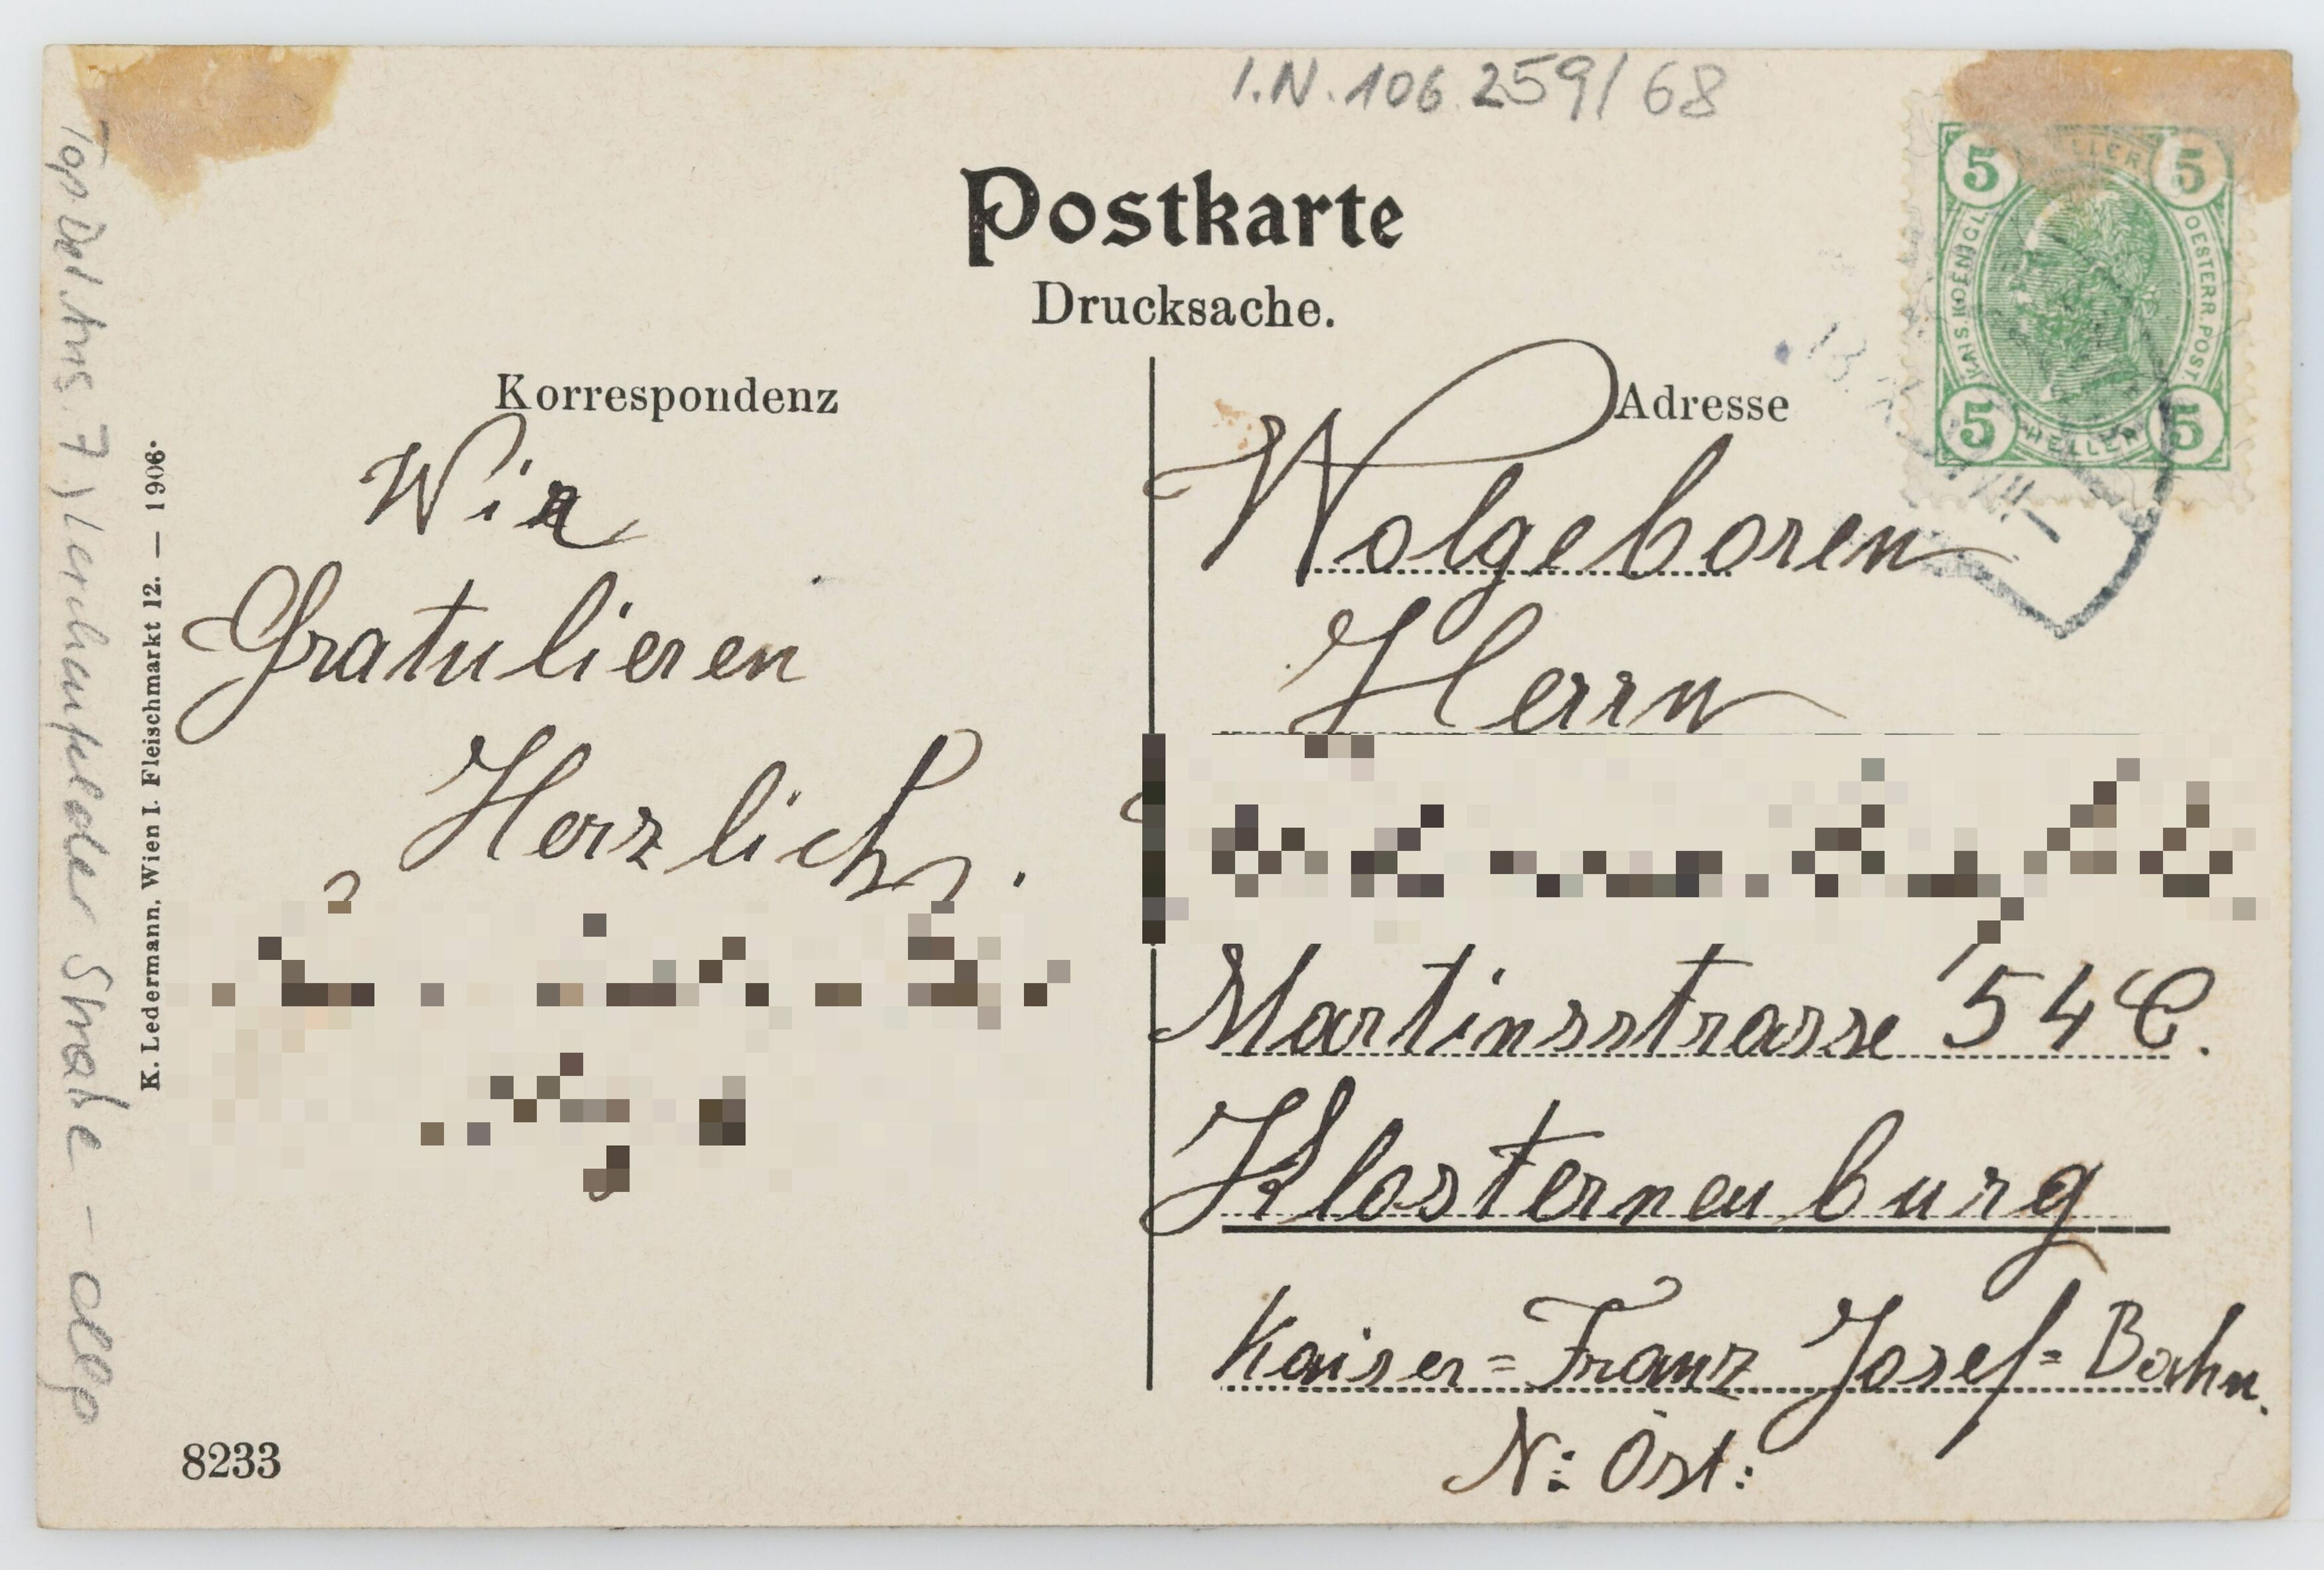 I.N. 106.259/68
Postkarte
Drucksache.
Korrespondenz
Adresse
5 HELLER 5
KAIS. KOENIGL.
OESTERR. POST.
5 HELLER 5
Wir
Gratulieren
Herzlich.
Wolgeboren
Herrn
Martinsstrasse 54
Klosterneuburg
Kaiser=Franz Josef=Bahn.
N: Öst:
K. Ledermann, Wien I. Fleischmarkt 12. — 1906.
Top. 7.) Lerchenfelder Straße – allg
8233